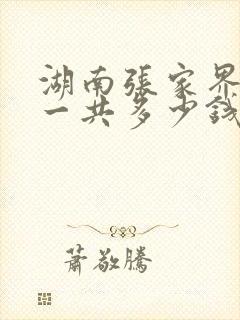 湖南張家界
一共多少錢
蕭敬騰